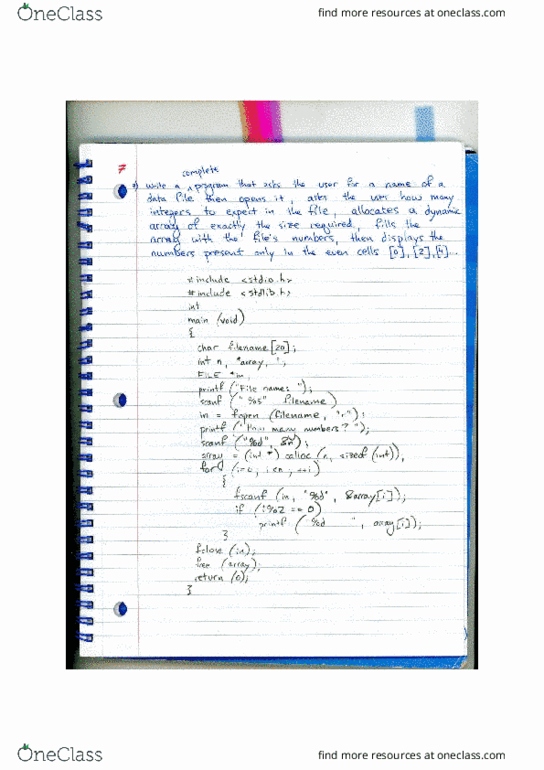 OneClass
find more resources at oneclass.com
7
complete
write a program that asks the user for a name of a
data file then opens it, asks the user how many
integers to expect in the file, allocates a dynamic
array of exactly the size required, fills the
array with the file's numbers, then displays the
numbers present only in the even cells [0],[2],[4]...
#include <stdio.h>
#include <stdlib.h>
int
main (void)
{
char filename[20];
int n, *array, i;
FILE *in;
printf ("File name: ");
scanf ("%s" filename)
in = fopen (filename, "r");
printf ("How many numbers? ");
scanf ("%d", &n);
array = (int *) calloc (n, sizeof (int));
for (i=0; i<n; ++i)
{
fscanf (in, "%d", &array[i]);
if (i%2 == 0)
printf ("%d ", array[i]);
}
fclose (in);
free (array);
return (0);
}
OneClass
find more resources at oneclass.com